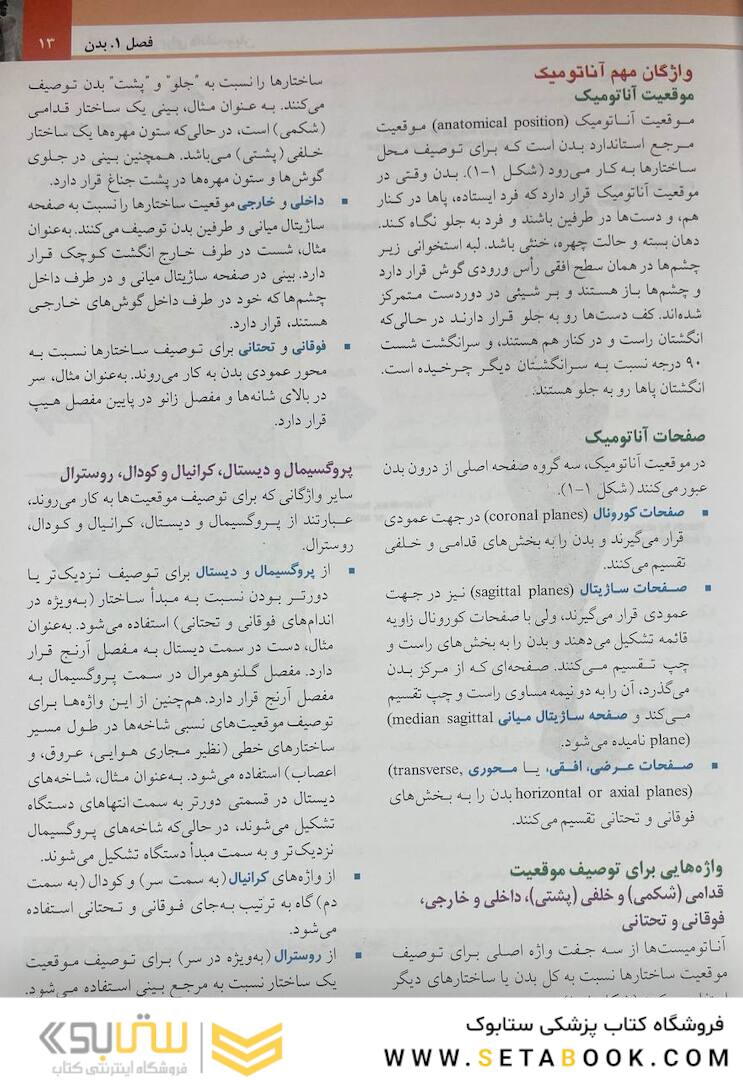 فصل ۱. بدن
۱۳
واژگان مهم آناتومیک
موقعیت آناتومیک
موقعیت آناتومیک (anatomical position) موقعیت
مرجع استاندارد بدن است که برای توصیف محل
ساختارها به کار می‌رود (شکل ۱-۱). بدن وقتی در
موقعیت آناتومیک قرار دارد که فرد ایستاده، پاها در کنار
هم، و دست‌ها در طرفین باشند و فرد به جلو نگاه کند.
دهان بسته و حالت چهره، خنثی باشد. لبه استخوانی زیر
چشم‌ها در همان سطح افقی رأس ورودی گوش قرار دارد
و چشم‌ها باز هستند و بر شیئی در دوردست متمرکز
شده‌اند. کف دست‌ها رو به جلو قرار دارند در حالی‌که
انگشتان راست و در کنار هم هستند، و سرانگشت شست
۹۰ درجه نسبت به سرانگشتان دیگر چرخیده است.
انگشتان پاها رو به جلو هستند.
صفحات آناتومیک
در موقعیت آناتومیک، سه گروه صفحه اصلی از درون بدن
عبور می‌کنند (شکل ۱-۱).
▪ صفحات کورونال (coronal planes) در جهت عمودی
قرار می‌گیرند و بدن را به بخش‌های قدامی و خلفی
تقسیم می‌کنند.
▪ صفحات ساژیتال (sagittal planes) نیز در جهت
عمودی قرار می‌گیرند، ولی با صفحات کورونال زاویه
قائمه تشکیل می‌دهند و بدن را به بخش‌های راست و
چپ تقسیم می‌کنند. صفحه‌ای که از مرکز بدن
می‌گذرد، آن را به دو نیمه مساوی راست و چپ تقسیم
می‌کند و صفحه ساژیتال میانی (median sagittal
plane) نامیده می‌شود.
▪ صفحات عرضی، افقی، یا محوری (transverse,
horizontal or axial planes) بدن را به بخش‌های
فوقانی و تحتانی تقسیم می‌کنند.
واژه‌هایی برای توصیف موقعیت
قدامی (شکمی) و خلفی (پشتی)، داخلی و خارجی،
فوقانی و تحتانی
آناتومیست‌ها از سه جفت واژه اصلی برای توصیف
موقعیت ساختارها نسبت به کل بدن یا ساختارهای دیگر
ساختارها را نسبت به "جلو" و "پشت" بدن توصیف
می‌کنند. به عنوان مثال، بینی یک ساختار قدامی
(شکمی) است، در حالی‌که ستون مهره‌ها یک ساختار
خلفی (پشتی) می‌باشد. همچنین بینی در جلوی
گوش‌ها و ستون مهره‌ها در پشت جناغ قرار دارد.
▪ داخلی و خارجی موقعیت ساختارها را نسبت به صفحه
ساژیتال میانی و طرفین بدن توصیف می‌کنند. به‌عنوان
مثال، شست در طرف خارج انگشت کوچک قرار
دارد. بینی در صفحه ساژیتال میانی و در طرف داخل
چشم‌ها که خود در طرف داخل گوش‌های خارجی
هستند، قرار دارد.
▪ فوقانی و تحتانی برای توصیف ساختارها نسبت به
محور عمودی بدن به کار می‌روند. به‌عنوان مثال، سر
در بالای شانه‌ها و مفصل زانو در پایین مفصل هیپ
قرار دارد.
پروگسیمال و دیستال، کرانیال و کودال، روسترال
سایر واژگانی که برای توصیف موقعیت‌ها به کار می‌روند،
عبارتند از پروگسیمال و دیستال، کرانیال و کودال،
روسترال.
▪ از پروگسیمال و دیستال برای توصیف نزدیک‌تر یا
دورتر بودن نسبت به مبدأ ساختار (به‌ویژه در
اندام‌های فوقانی و تحتانی) استفاده می‌شود. به‌عنوان
مثال، دست در سمت دیستال به مفصل آرنج قرار
دارد. مفصل گلنوهومرال در سمت پروگسیمال به
مفصل آرنج قرار دارد. هم‌چنین از این واژه‌ها برای
توصیف موقعیت‌های نسبی شاخه‌ها در طول مسیر
ساختارهای خطی (نظیر مجاری هوایی، عروق، و
اعصاب) استفاده می‌شود. به‌عنوان مثال، شاخه‌های
دیستال در قسمتی دورتر به سمت انتهاهای دستگاه
تشکیل می‌شوند، در حالی‌که شاخه‌های پروگسیمال
نزدیک‌تر و به سمت مبدأ دستگاه تشکیل می‌شوند.
▪ از واژه‌های کرانیال (به سمت سر) و کودال (به سمت
دم) گاه به ترتیب به‌جای فوقانی و تحتانی استفاده
می‌شود.
▪ از روسترال (به‌ویژه در سر) برای توصیف موقعیت
یک ساختار نسبت به مرجع بینی استفاده می‌شود.
فروشگاه کتاب پزشکی ستابوک
WWW.SETABOOK.COM
ستابوک
فروشگاه اینترنتی کتاب